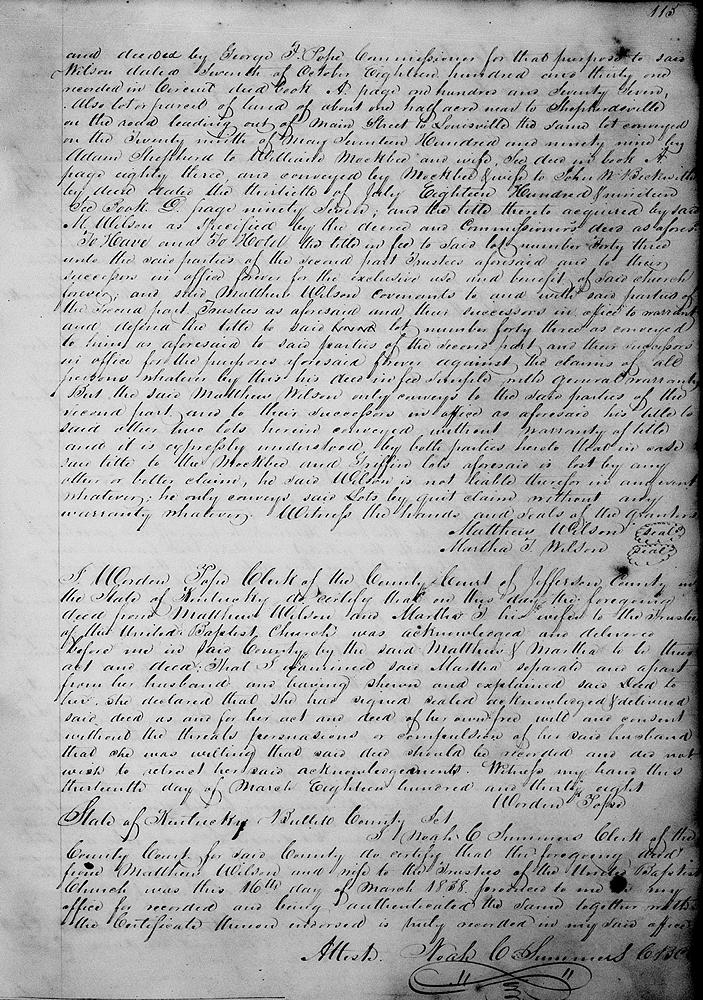 115
and decreed by George F. Pope Commissioner for that purpose to said
Wilson dated Seventh of October Eighteen hundred and thirty one
recorded in Circuit deed book A. page one hundred and Seventy Seven,
Also lot or parcel of land of about one half acre near to Shepherdsville
on the road leading out of Main Street to Louisville the same lot conveyed
on the Twenty ninth of May Seventeen Hundred and ninety nine by
Adam Shepherd to William Mockbee and wife, See deed in book A
page eighty three, and conveyed by Mockbee & wife to John W. Beckwith
by deed dated the thirtieth of July Eighteen Hundred & nineteen
See Book D. page ninety Seven; and the title thereto acquired by said
M. Wilson as Specified by the decree and Commissioners deed as afores
To Have and To Hold the title in fee to said lot number forty three
unto the said parties of the second part Trustees aforesaid and to their
successors in office forever for the exclusive use and benefit of said church
forever; and said Matthew Wilson covenants to and with said parties of
the second part Trustees as aforesaid and their successors in office to warrant
and defend the title to said lot number forty three as conveyed
to him as aforesaid to said parties of the second part and their successors
in office for the purposes aforesaid forever against the claims of all
persons whatever by this his deed in fee simple with general warranty
But the said Matthew Wilson only conveys to the said parties of the
second part and to their successors in office as aforesaid his title to
said other two lots herein conveyed without warranty of title
and it is expressly understood by both parties hereto that in case
said title to the Mockbee and Griffin lots aforesaid is lost by any
other or better claim, he said Wilson is not liable therefor in any event
whatever; he only conveys said Lots by quit claim without any
warranty whatever. Witness the hands and seals of the grantors
Matthew Wilson Seal
Martha T Wilson Seal
I Worden Pope Clerk of the County Court of Jefferson County in
the State of Kentucky do certify that on this day the foregoing
deed from Matthew Wilson and Martha T his wife to the Trustees
of the United Baptist Church was acknowledged and delivered
before me in said County by the said Matthew & Martha to be their
act and deed; That I examined said Martha separate and apart
from her husband and having shewn and explained said Deed to
her she declared that she had signed sealed acknowledged & delivered
said deed as and for her act and deed of her own free will and consent
without the threats persuasions or compulsion of her said husband
that she was willing that said deed should be recorded and did not
wish to retract her said acknowledgements. Witness my hand this
thirteenth day of March Eighteen hundred and thirty eight
Worden Pope
State of Kentucky Bullitt County Sct
I Noah C Summers Clerk of the
County Court for said County do certify that the foregoing deed
from Matthew Wilson and wife to the Trustees of the United Baptist
Church was this 16th day of March 1838 produced to me in my
office for recorded and being authenticated the same together with
the Certificate thereon endorsed is truly recorded in my said office
Attest. Noah C Summers C B C C